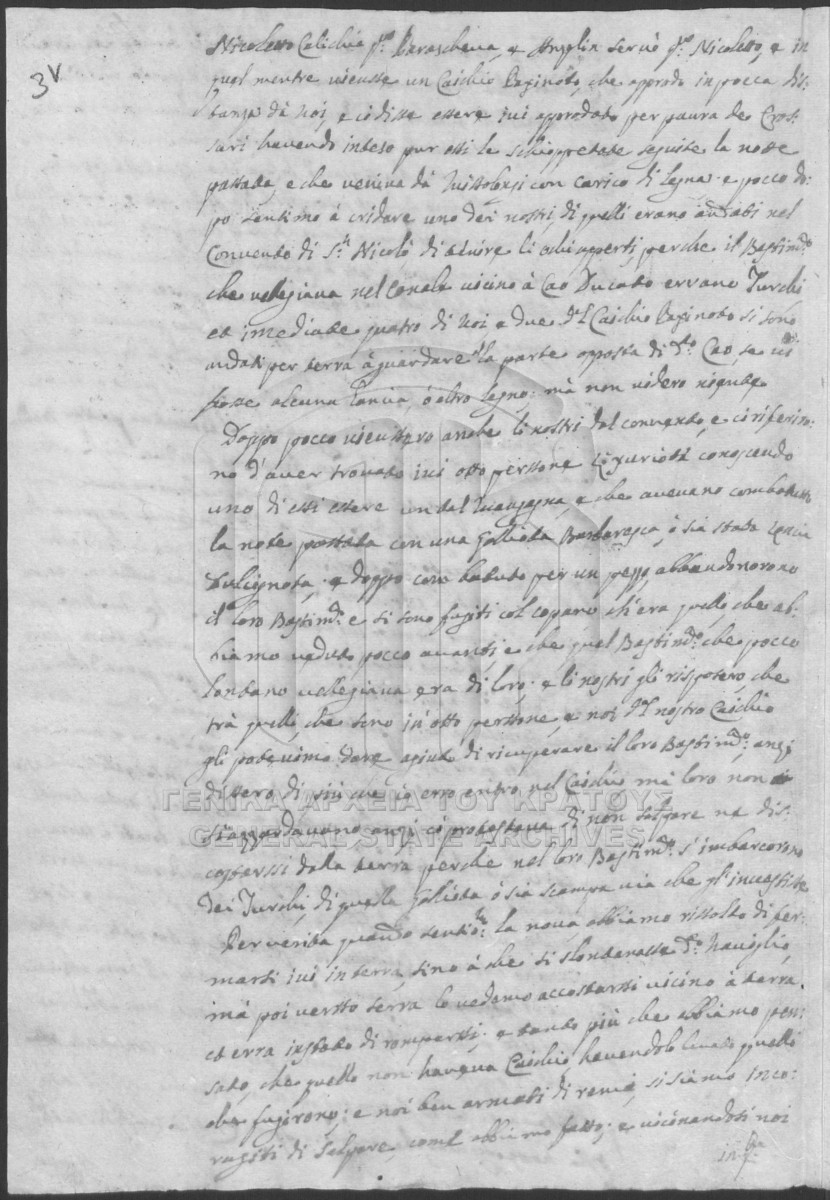 3v
Nicoletto Calichia q.m Parascheva, e Anzolin Servò q.m Nicoletto, e in
quel mentre vicusse un Caichio Paxinoto, che approdo in pocca dis-
tanza dà Noi, e ci disse essere ivi approdato per paura de Cros-
sari havendo inteso pur essi le schioppetate seguite la notte
passata, e che veniva dà Missolongi con carico di legna. e pocco do-
po sentimo à cridare uno dei nostri, di quelli erano andati nel
Convento di S.n Nicolò di tenire li ochi apperti, perche il Bastim.to
che vellegiava nel Canale vicino à Cao Ducato errano Turchi
et imediate quatro di Noi e due d.l Caichio Paxinoto si sono
andati per terra à guardare d.lla parte oposta di d.to Cao, se vi
fosse alcuna Lancia, ò altro legno: mà non videro niente
Doppo pocco vicussero anche li nostri dal convento, e ci riferiro-
no d'aver trovato ivi otto perssone conoscendo
uno di essi essere un dal e che avevano combattuto
la note passata con una Galliota Barbaresca, ò sia stata Lancia
Dulcignota, e doppo combatuto per un pezzo, abbandonorono
il loro Bastim.to e si sono fugiti col copano ch'era quello, che ab-
biamo veduto pocco avanti, e che quel Bastim.to che pocco
lontano vellegiava era di loro; e li nostri gli risposero, che
trà quelli, che sono in otto perssone, e noi d.l nostro Caichio
gli potevimo dare agiuto di ricuperare il loro Bastim.to: anzi
dissero di più che ci erro entro nel Caichio mà loro non
s'azzardavano anzi ci protestava di non salpare ne dis-
costarssi dalla terra perche nel loro Bastim.to s'imbarcorono
dei Turchi, di quella Galiota ò sia scampavia che gl'incestise
Per verita quando sentio.: la nova abbiamo rissolto di fer-
marsi ivi in terra, sino à che si slontanasse d.to Naviglio,
mà poi versso serra lo vedemo accostarssi vicino à terra,
et erra instato di romperssi; e tanto più che abbiamo pen-
sato, che quello non haveva Caichio havendolo levato quelli
che fugirono; e noi ben armati di remi, si siamo inco-
ragiti di Salpare, come abbiamo fatto; e vicinandosi noi
ΓΕΝΙΚΑ ΑΡΧΕΙΑ ΤΟΥ ΚΡΑΤΟΥΣ
GENERAL STATE ARCHIVES